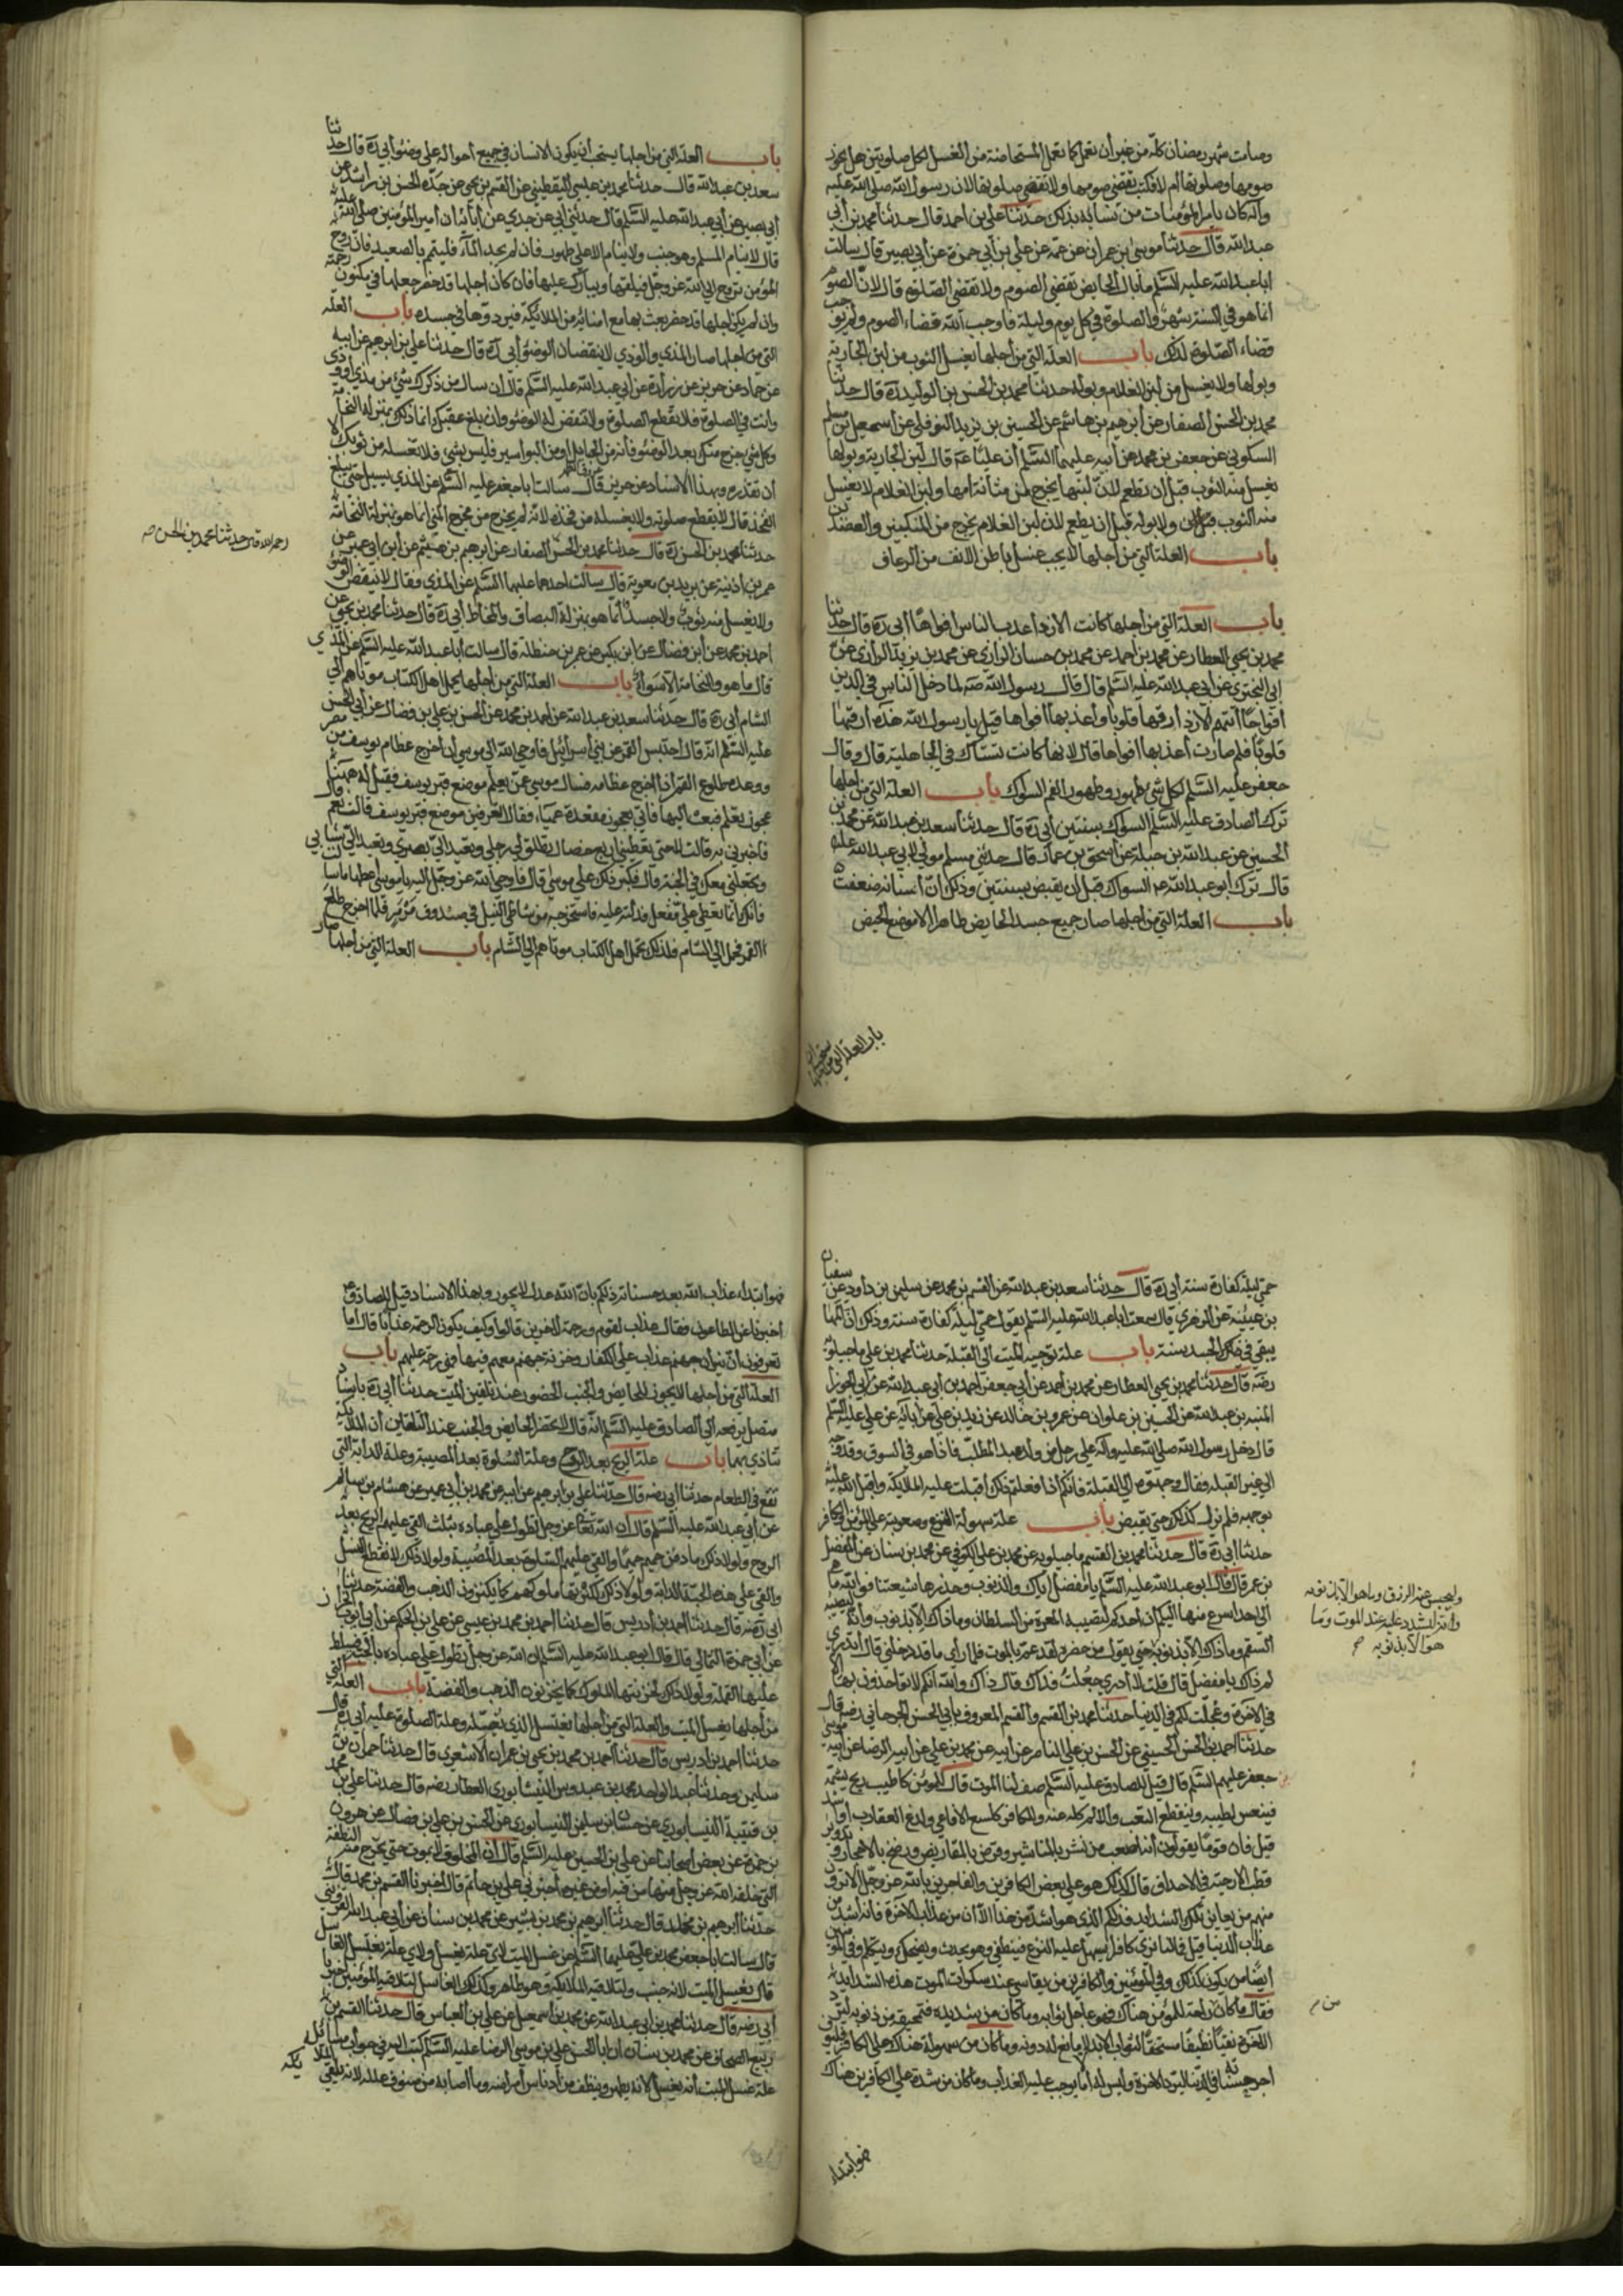 وصامت شهر رمضان كله من غير أن تعمل كما تعمل المستحاضة من الغسل لكل صلوتين هل يجوز
صومها وصلوتها أم لا فكتب تقضي صومها ولا تقضي صلوتها لان رسول الله صلى الله عليه
وآله كان يامر المؤمنات من نسائه بذلك حدثنا علي بن احمد قال حدثنا محمد بن أبي
عبد الله قال حدثنا موسى بن عمران عن عمه عن علي بن أبي حمزة عن أبي بصير قال سالت
ابا عبد الله عليه السلم ما بال الحايض تقضي الصوم ولا تقضي الصلوة قال لان الصوم
انما هو في السنة شهر والصلوة في كل يوم وليلة فاوجب الله قضاء الصوم ولم يوجب
قضاء الصلوة لذلك باب العلة التي من أجلها يغسل الثوب من لبن الجارية
وبولها ولا يغسل من لبن الغلام وبوله حدثنا محمد بن الحسن بن الوليد ره قال حدثنا
محمد بن الحسن الصفار عن أبرهيم بن هاشم عن الحسين بن يزيد النوفلي عن اسمعيل بن مسلم
السكوني عن جعفر بن محمد عن أبيه عليهما السلم أن عليا ع قال لبن الجارية وبولها
يغسل منه الثوب قبل ان تطعم لان لبنها يخرج من مثانة أمها ولبن الغلام لا يغسل
منه الثوب ولا بوله قبل ان يطعم لان لبن الغلام يخرج من المنكبين والعضدين
باب العلة التي من أجلها لا يجب غسل باطن الانف من الرعاف
باب العلة التي من اجلها كانت الازد أعذب الناس افواها أبي ره قال حدثنا
محمد بن يحيى العطار عن محمد بن احمد عن محمد بن حسان الرازي عن محمد بن يزيد الرازي عن
ابي البختري عن أبي عبد الله عليه السلم قال قال رسول الله ص لما دخل الناس في الدين
افواجا أتتهم الازد أرقها قلوبا وأعذبها أفواها قيل يا رسول الله هذه أرقها
قلوبا فلم صارت أعذبها افواها قال لانها كانت تستاك في الجاهلية قال وقال
جعفر عليه السلم لكل شيء طهور وطهور الفم السواك باب العلة التي من اجلها
ترك الصادق عليه السلم السواك بسنتين أبي ره قال حدثنا سعد بن عبد الله عن محمد بن
الحسين عن عبد الله بن جبلة عن اسحق بن عمار قال حدثني مسلم مولى لابي عبد الله عليه
قال ترك أبو عبد الله ع السواك قبل ان يقبض بسنتين وذلك أن أسنانه ضعفت
باب العلة التي من اجلها صار جميع جسد الحايض طاهرا الا موضع الحيض
باب العلة التي من اجلها يستحب
باب العلة التي من اجلها يستحب أن يكون الانسان في جميع أحواله على وضوء أبي ره قال حدثنا
سعد بن عبد الله قال حدثنا محمد بن عيسى اليقطيني عن القسم بن يحيى عن جده الحسن بن راشد عن
أبي بصير عن أبي عبد الله عليه السلم قال حدثني أبي عن جدي عن أبائه ان أمير المؤمنين صلى الله عليه
قال لا ينام المسلم وهو جنب ولا ينام الا على طهور فان لم يجد الماء فليتيمم بالصعيد فان روح
المؤمن تروح إلى الله عز وجل فيلقيها ويبارك عليها فان كان أجلها قد حضر جعلها في مكنون رحمته
وان لم يكن اجلها قد حضر بعث بها مع امنائه من الملائكة فيردوها في جسده باب العلة
التي من أجلها صار المذي والودي لا ينقضان الوضوء أبي ره قال حدثنا علي بن ابرهيم عن ابيه
عن حماد عن حريز عن زرارة عن أبي عبد الله عليه السلم قال ان سال من ذكرك شيء من مذي أو ودي
وأنت في الصلوة فلا تقطع الصلوة ولا تنقض له الوضوء وان بلغ عقبك انما ذلك بمنزلة النخامة
وكل شيء خرج منك بعد الوضوء فأنه من الحبايل او من البواسير فليس بشيء فلا تغسله من ثوبك الا
أن تقذره وبهذا الاسناد عن حريز قال سالت ابا جعفر عليه السلم عن المذي يسيل حتى يبلغ
الفخذ قال لا يقطع صلوته ولا يغسله من فخذه لانه لم يخرج من مخرج المني انما هو بمنزلة النخامة
حدثنا محمد بن الحسن ره قال حدثنا محمد بن الحسن الصفار عن ابرهيم بن هيثم عن ابن ابي عمير عن
عمر بن اذينة عن بريد بن معوية قال سالت احدهما عليهما السلم عن المذي فقال لا ينقض الوضوء
ولا يغسل منه ثوب ولا جسد انما هو بمنزلة البصاق والمخاط أبي ره قال حدثنا محمد بن يحيى عن
احمد بن محمد عن أبن فضال عن ابن بكير عن عمر بن حنظلة قال سالت أبا عبد الله عليه السلم عن المذي
قال ما هو والنخامة الا سواء باب العلة التي من أجلها يحمل اهل الكتاب موتاهم الى
الشام أبي ره قال حدثنا سعد بن عبد الله عن احمد بن محمد عن الحسن بن علي بن فضال عن أبي الحسن
عليه السلم انه قال احتبس القمر عن بني أسرائيل فاوحى الله الى موسى أن أخرج عظام يوسف من مصر
ووعده طلوع القمر اذا اخرج عظامه فسال موسى عمن يعلم موضع قبر يوسف فقيل له ههنا
عجوز تعلم فبعث اليها فاتي بعجوز مقعدة عمياء فقال اتعرفين موضع قبر يوسف قالت نعم قال
فاخبريني به قالت لا حتى تعطيني اربع خصال تطلق لي رجلي وتعيد الي بصري وتعيد الي شبابي
وتجعلني معك في الجنة قال فكبر ذلك على موسى قال فاوحى الله عز وجل اليه يا موسى اعطها ما سالت
فأنك انما تعطي علي ففعل فدلته عليه فاستخرجه من شاطئ النيل في صندوق مرمر فلما اخرج طلع
القمر فحمل الى الشام فلذلك تحمل اهل الكتاب موتاهم إلى الشام باب العلة التي من أجلها صار
رحمه الله قال حدثنا محمد بن الحسن صه
حمى ليلة كفارة سنة أبي ره قال حدثنا سعد بن عبد الله عن القسم بن محمد عن سليمن بن داود عن سفيان
بن عيينة عن الزهري قال سمعت ابا عبد الله عليه السلم يقول حمى ليلة كفارة سنة وذلك ان المها
يبقى في الجسد سنة باب علة توجيه الميت الى القبلة حدثنا محمد بن علي ماجيلويه
رضه قال حدثنا محمد بن يحيى العطار عن محمد بن أحمد عن أبي جعفر احمد بن أبي عبد الله عن أبي الجوزا
المنبه بن عبد الله عن الحسين بن علوان عن عمرو بن خالد عن زيد بن علي عن أبائه عن علي عليه السلم
قال دخل رسول الله صلى الله عليه وآله على رجل من ولد عبد المطلب فاذا هو في السوق وقد وجه
الى غير القبلة فقال وجهوه الى القبلة فانكم أذا فعلتم ذلك أقبلت عليه الملائكة واقبل الله عليه
بوجهه فلم يزل كذلك حتى يقبض باب علة سهولة النزع وصعوبته على المؤمن والكافر
حدثنا أبي ره قال حدثنا محمد بن القسم ماجيلويه عن محمد بن علي الكوفي عن محمد بن سنان عن المفضل
بن عمر قال قال ابو عبد الله عليه السلم يا مفضل اياك والذنوب وحذرها شيعتنا فوالله ما هي
الى احد اسرع منها اليكم ان أحدكم لتصيبه المعرة من السلطان وما ذاك الا بذنوبه وأنه ليصيبه
السقم وما ذاك الا بذنوبه حتى يقول من حضره لقد غم بالموت فلما رأى ما قد دخلني قال أتدري
لم ذاك يا مفضل قال قلت لا أدري جعلت فداك قال ذاك والله أنكم لا تواخذون بها
في الاخرة وعجلت لكم في الدنيا حدثنا محمد بن القسم المعروف بأبي الحسن الجرجاني رضه قال
حدثنا احمد بن الحسن الحسيني عن الحسن بن علي الناصر عن أبيه عن محمد بن علي عن أبيه الرضا عن أبيه موسى
جعفر عليهم السلم قال قيل للصادق عليه السلم صف لنا الموت قال للمؤمن كاطيب ريح يشمه
فينعس لطيبه وينقطع التعب والالم كله عنه وللكافر كلسع الافاعي ولدغ العقارب أو اشد
قيل فان قوما يقولون أنه اصعب من نشر بالمناشير وقرض بالمقاريض ورضخ بالاحجار وتدوير
قطب الارحية في الاحداق قال كذلك هو على بعض الكافرين والفاجرين بالله عز وجل الا ترون
منهم من يعاين تلك الشدايد فذلكم الذي هو اشد من هذا الا من عذاب الاخرة فانه أشد من
عذاب الدنيا قيل فما لنا نرى كافرا يسهل عليه النزع فينطفي وهو يحدث ويضحك ويتكلم وفي المؤمنين
أيضا من يكون كذلك وفي المؤمنين والكافرين من يقاسي عند سكرات الموت هذه الشدايد
فقال ما كان راحة للمؤمن هناك فهو عاجل ثوابه وما كان من شديدة فتمحيصه من ذنوبه ليرد
الاخرة نقيا نظيفا مستحقا لثواب الابد لا مانع له دونه وما كان من سهولة هناك على الكافر فليوفى
اجر حسناته في الدنيا ليرد الاخرة وليس له الا ما يوجب عليه العذاب وما كان من شدة على الكافرين هناك
فهو أبتداء
وليحبس عنه الرزق وما هو الا بذنوبه
وأنه ليشدد عليه عند الموت وما
هو الا بذنوبه
فهو أبتداء عذاب الله بعد حسناته ذلكم بان الله عدل لا يجور وبهذا الاسناد قيل للصادق ع
أخبرنا عن الطاعون فقال عذاب لقوم ورحمة لاخرين قالوا وكيف يكون الرحمة عذابا قال اما
تعرفون أن نيران جهنم عذاب على الكفار وخزنة جهنم معهم فيها فهي رحمة عليهم باب
العلة التي من أجلها لا يجوز للحايض والجنب الحضور عند تلقين الميت حدثنا أبي ره باسناد
متصل يرفعه الى الصادق عليه السلم انه قال لا تحضر الحايض والجنب عند التلقين أن الملائكة
تتاذى بهما باب علة الريح بعد الروح وعلة السلوة بعد المصيبة وعلة الدابة التي
تقع في الطعام حدثنا أبي رضه قال حدثنا علي بن ابرهيم عن أبيه عن محمد بن أبي عمير عن هشام بن سالم
عن أبي عبد الله عليه السلم قال ان الله تعالى عز وجل تطول على عباده بثلث القى عليهم الريح بعد
الروح ولولا ذلك ما دفن حميم حميما والقى عليهم السلوة بعد المصيبة ولولا ذلك لانقطع النسل
والقى على هذه الحبة الدابة ولولا ذلك لكنزتها ملوكهم كما يكنزون الذهب والفضة حدثنا
أبي رضه قال حدثنا احمد بن أدريس قال حدثنا احمد بن محمد بن عيسى عن علي بن الحكم عن أبي أيوب الخزاز
عن أبي حمزة الثمالي قال قال ابو عبد الله عليه السلم ان الله عز وجل تطول على عباده بالحبة فسلط
عليها القملة ولولا ذلك لخزنتها الملوك كما يخزنون الذهب والفضة باب العلة التي
من أجلها يغسل الميت والعلة التي من أجلها يغتسل الذي يغسله وعلة الصلوة عليه أبي ره قال
حدثنا احمد بن ادريس قال حدثنا أحمد بن محمد بن يحيى بن عمران الاشعري قال حدثنا حمدان بن
سليمن وحدثنا عبد الواحد بن محمد بن عبدوس النيشابوري العطار رضه قال حدثنا علي بن محمد
بن قتيبة النيسابوري عن حمدان بن سليمن النيسابوري عن الحسن بن علي بن فضال عن هرون
بن حمزة عن بعض أصحابنا عن علي بن الحسين عليه السلم قال أن المخلوق لا يموت حتى يخرج منه النطفة
التي خلقه الله عز وجل منها من فيه او من غيره أخبرني علي بن حاتم قال اخبرنا القسم بن محمد قال
حدثنا ابرهيم بن مخلد قال حدثنا أبرهيم بن محمد بن بشير عن محمد بن سنان عن أبي عبد الله القزويني
قال سالت ابا جعفر محمد بن علي عليهما السلم عن غسل الميت لاي علة يغسل ولاي علة يغتسل الغاسل
قال يغسل الميت لانه جنب ولتلاقيه الملائكة وهو طاهر وكذلك الغاسل لتلاقيه المؤمنين
أبي رضه قال حدثنا محمد بن ابي عبد الله عن محمد بن اسمعيل عن علي بن العباس قال حدثنا القسم بن
ربيع الصحاف عن محمد بن سنان ان ابا الحسن علي بن موسى الرضا عليه السلم كتب اليه في جواب مسائله
علة غسل الميت أنه يغسل لانه يطهر وينظف من أدناس أمراضه وما أصابه من صنوف علله لانه يلقى الملائكة